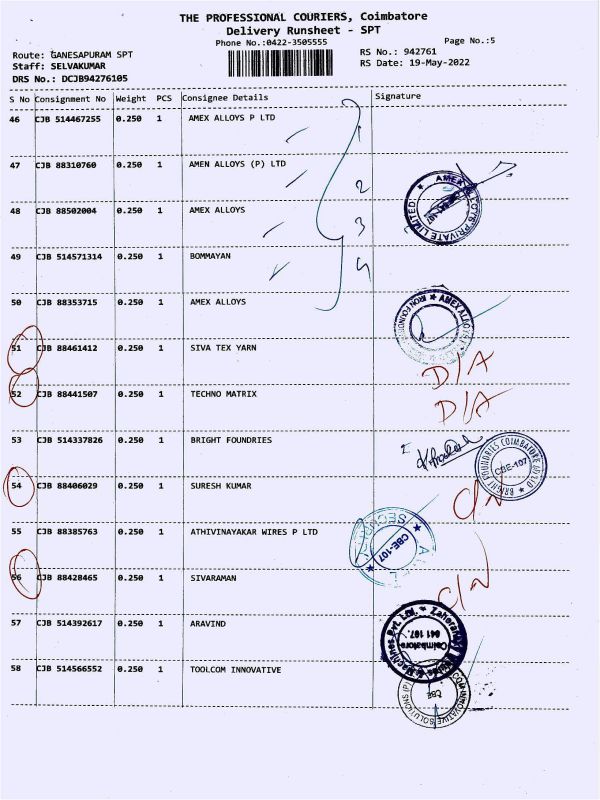 THE PROFESSIONAL COURIERS, Coimbatore
Delivery Runsheet - SPT
Phone No.:0422-3505555
Page No.:5
Route: GANESAPURAM SPT
RS No.: 942761
Staff: SELVAKUMAR
RS Date: 19-May-2022
DRS No.: DCJB94276105
S No Consignment No Weight PCS Consignee Details Signature
46 CJB 514467255 0.250 1 AMEX ALLOYS P LTD
1
47 CJB 88310760 0.250 1 AMEN ALLOYS (P) LTD
2
48 CJB 88502004 0.250 1 AMEX ALLOYS
AMEX ALLOYS PRIVATE LIMITED
3
49 CJB 514571314 0.250 1 BOMMAYAN
4
50 CJB 88353715 0.250 1 AMEX ALLOYS
51 CJB 88461412 0.250 1 SIVA TEX YARN
D/A
52 CJB 88441507 0.250 1 TECHNO MATRIX
D/A
53 CJB 514337826 0.250 1 BRIGHT FOUNDRIES
BRIGHT FOUNDRIES COIMBATORE (P) LTD
CBE-107
54 CJB 88406029 0.250 1 SURESH KUMAR
C/N
55 CJB 88385763 0.250 1 ATHIVINAYAKAR WIRES P LTD
SECURITY
CBE-107
56 CJB 88428465 0.250 1 SIVARAMAN
C/N
57 CJB 514392617 0.250 1 ARAVIND
Machines Pvt. Ltd.
Coimbatore
641 107.
58 CJB 514566552 0.250 1 TOOLCOM INNOVATIVE